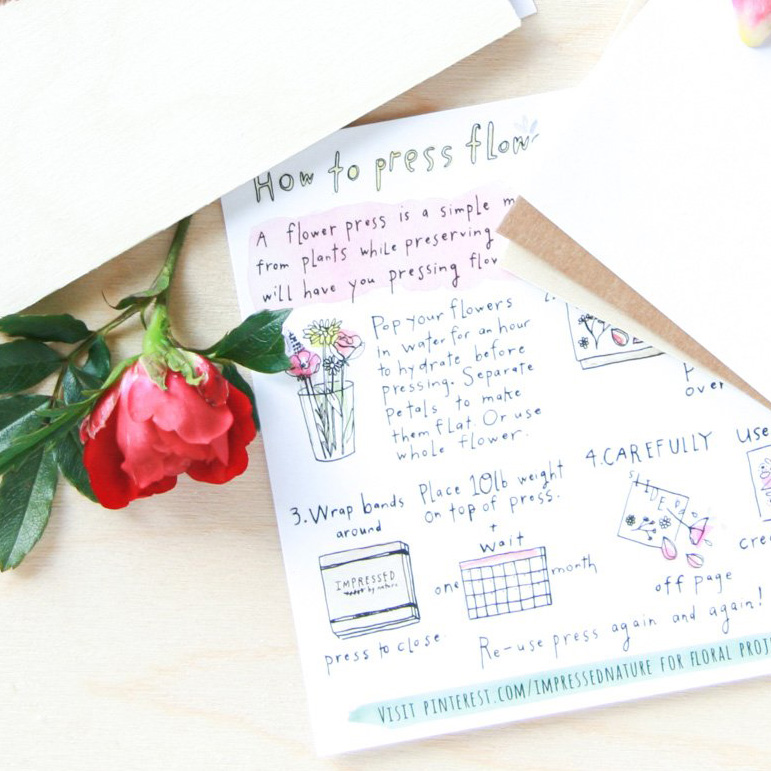 How to press
A flower press is a simple
from plants while preserving
will have you pressing
Pop your flowers
in water for an hour
to hydrate before
pressing. Separate
petals to make
them flat. Or use
whole flower.
over
3. Wrap bands
around
IMPRESSED
by nature
press to close
Place 10lb weight
on top of press.
+
wait
one month
4. CAREFULLY
SLIDE
off page
Use
Re-use press again and again!
VISIT PINTEREST.COM/IMPRESSEDNATURE FOR FLORAL